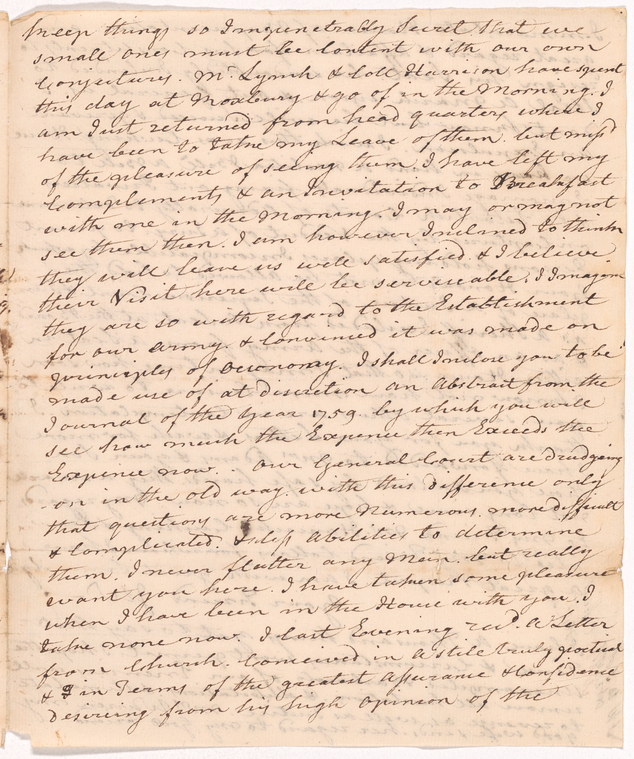 keep things so Impenetrably Secret that we
small ones must be Content with our own
Conjectures. Mr. Lynch & Coll Harrison have spent
this day at Roxbury & go of in the Morning. I
am Just returned from head quarters where I
have been to take my Leave of them. but miss'd
of the pleasure of seeing them. I have left my
Complements & an Invitation to Breakfast
with me in the Morning. I may or may not
see them then. I am however Inclined to think
they will leave us well satisfied. & I believe
their Visit here will be serviceable. I Imagine
they are so with regard to the Establishment
for our army. & Convinced it was made on
principles of oeconomy. I shall Inclose you to be
made use of at discretion an Abstract from the
Journal of the Year 1759. by which you will
see how much the Expence then Exceeds the
Expence now. . our General Court are drudging
on in the old way. with this difference only
that questions are more Numerous. more difficult
& Complicated. & less Abilities to determine
them. I never flatter any Man. but really
want you here. I have taken some pleasure
when I have been in the House with you. I
take none now. I last Evening recd. a Letter
from Church. Conceived in a stile truly poetical
& in Terms of the greatest Assurance & Confidence
desireing from his high Opinion of the